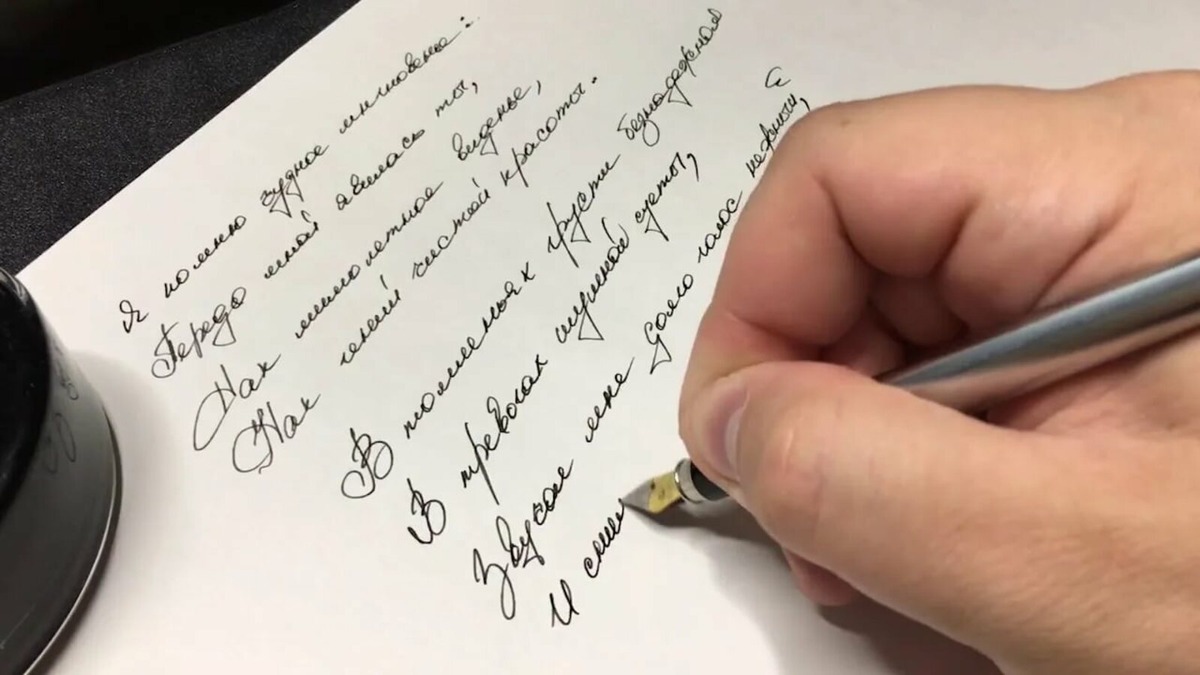 Я помню чудное мгновенье:
Передо мной явилась ты,
Как мимолетное виденье,
Как гений чистой красоты.
В томленьях грусти безнадежной
В тревогах шумной суеты,
Звучал мне долго голос нежный,
И сни